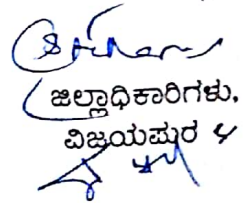 ಜಿಲ್ಲಾಧಿಕಾರಿಗಳು,
ವಿಜಯಪುರ